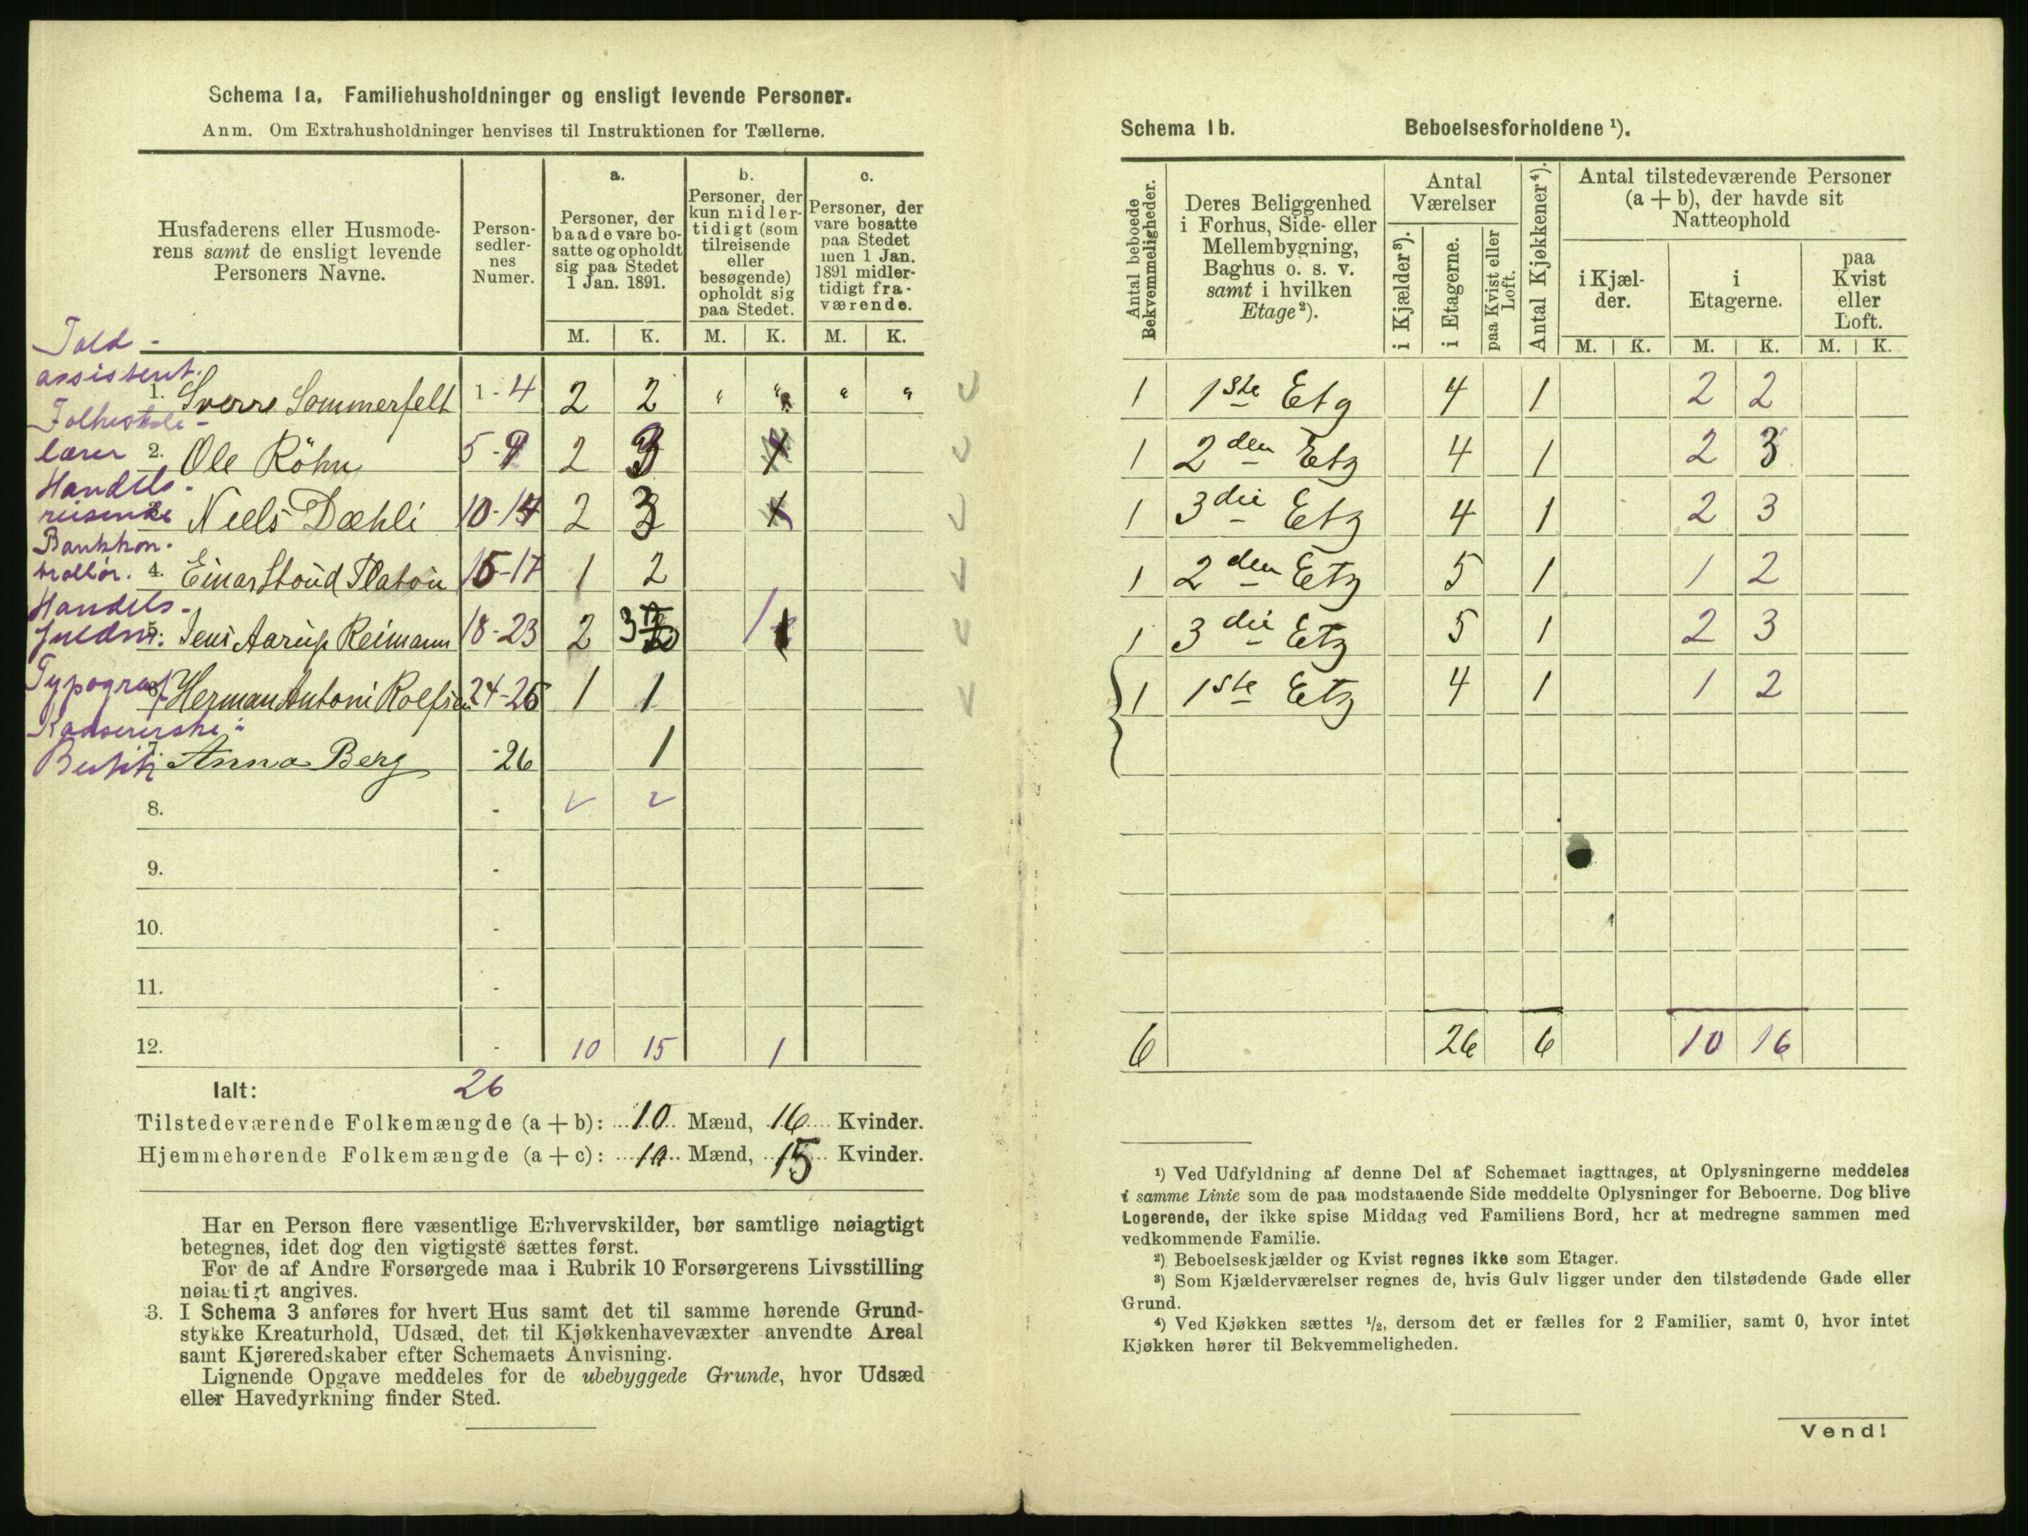 Schema 1a. Familiehusholdninger og ensligt levende Personer.
Anm. Om Extrahusholdninger henvises til Instruktionen for Tællerne.
Husfaderens eller Husmode-
rens samt de ensligt levende
Personers Navne.
Person-
sedler-
nes
Numer.
a.
Personer, der
baade vare bo-
satte og opholdt
sig paa Stedet
1 Jan. 1891.
b.
Personer, der
kun midler-
tidigt (som
tilreisende
eller
besøgende)
opholdt sig
paa Stedet.
c.
Personer, der
vare bosatte
paa Stedet
men 1 Jan.
1891 midler-
tidigt fra-
værende.
M. K. M. K. M. K.
Told-
assistent.
1. Sverre Sommerfelt 1-4 2 2 " " " "
lærer 2. Ole Röhn 5-9 2 3
Handels-
reisende Niels Dæhli 10-14 2 3
Bankkon-
trollør. 4. Einar Stoud Platou 15-17 1 2
Handels-
fuldm: 5. Jens Aarup Reimann 18-23 2 3 1
Typograf Herman Antoni Rolfsen 24-25 1 1
7. Anna Berg -26 1
8. -
9. -
10. -
11. -
12. - 10 15 1
Ialt: 26
Tilstedeværende Folkemængde (a + b): 10 Mænd, 16 Kvinder.
Hjemmehørende Folkemængde (a + c): 10 Mænd, 15 Kvinder.
Har en Person flere væsentlige Erhvervskilder, bør samtlige nøiagtigt
betegnes, idet dog den vigtigste sættes først.
For de af Andre Forsørgede maa i Rubrik 10 Forsørgerens Livsstilling
nøiagtigt angives.
3. I Schema 3 anføres for hvert Hus samt det til samme hørende Grund-
stykke Kreaturhold, Udsæd, det til Kjøkkenhavevæxter anvendte Areal
samt Kjøreredskaber efter Schemaets Anvisning.
Lignende Opgave meddeles for de ubebyggede Grunde, hvor Udsæd
eller Havedyrkning finder Sted.
Schema 1b. Beboelsesforholdene ¹).
Antal beboede
Bekvemmeligheder.
Deres Beliggenhed
i Forhus, Side- eller
Mellembygning,
Baghus o. s. v.
samt i hvilken
Etage²).
Antal
Værelser
i Kjælder³).
i Etagerne.
paa Kvist eller
Loft.
Antal Kjøkkener⁴).
Antal tilstedeværende Personer
(a + b), der havde sit
Natteophold
i Kjæl-
der.
i
Etagerne.
paa
Kvist
eller
Loft.
M. K. M. K. M. K.
1 1ste Etg 4 1 2 2
1 2den Etg 4 1 2 3
1 3die Etg 4 1 2 3
1 2den Etg 5 1 1 2
1 3die Etg 5 1 2 3
1 1ste Etg 4 1 1 2
6 26 6 10 16
¹) Ved Udfyldning af denne Del af Schemaet iagttages, at Oplysningerne meddeles
i samme Linie som de paa modstaaende Side meddelte Oplysninger for Beboerne. Dog blive
Logerende, der ikke spise Middag ved Familiens Bord, her at medregne sammen med
vedkommende Familie.
²) Beboelseskjælder og Kvist regnes ikke som Etager.
³) Som Kjælderværelser regnes de, hvis Gulv ligger under den tilstødende Gade eller
Grund.
⁴) Ved Kjøkken sættes ½, dersom det er fælles for 2 Familier, samt 0, hvor intet
Kjøkken hører til Bekvemmeligheden.
Vend!